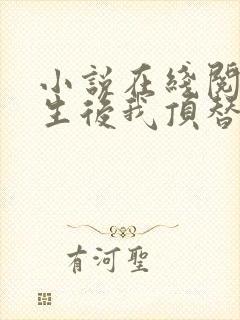 小説在綫閱
生後我頂替
有河聖